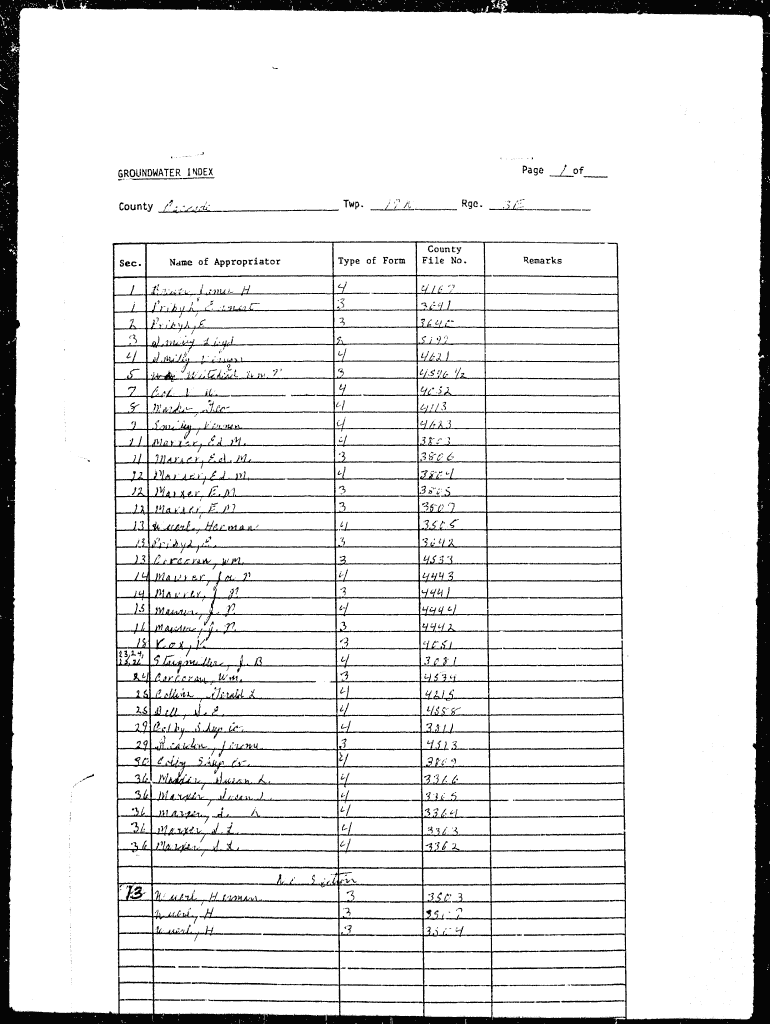 GROUNDWATER INDEX Page 1 of
County Cascade Twp. Rge. 3E
Sec. Name of Appropriator Type of Form County File No. Remarks
1 4 4167
1 Pribyl, Ernest 3 3641
2 Pribyl, E 3 3640
3 Lloyd
4 Smilly Vernon 4 4621
5 Wm. P 3 4596 1/2
7 4 4032
8 Geo 4 4113
9 Smiley, Vernon 4 4623
11 Marxer, Ed M. 4 3803
11 Marxer, Ed. M. 3 3806
12 Marxer, Ed M. 4 3804
12 Marxer, E. M 3 3805
12 Marxer, E M 3 3807
13 Wuerl, Herman 4 3505
13 Pribyl, E. 3 3642
13 Corcoran, WM. 3 4533
14 Maurer, Joe P 4 4443
14 Maurer, J P 3 4441
15 Maurer, J. P. 4 4444
16 Maurer, J. P. 3 4442
18 Kox, V. 3 4051
23,24, 25,26 J. B 4 3081
24 Corcoran, Wm. 3 4534
25 Gerald L 4 4215
28 Dell, 4 4558
29 Colby Sheep Co. 4 3811
29 Jerome 3 4513
30 Colby Sheep Co. 4 3809
36 Marxer, Susan L. 4 3366
36 Marxer, Susan L. 4 3365
36 Marxer, S. 4 3364
36 Marxer, S L. 4 3363
36 Marxer, S L. 4 3362
No Section
13 Wuerl, Herman 3 3503
Wuerl, H 3
Wuerl, H 3 3504